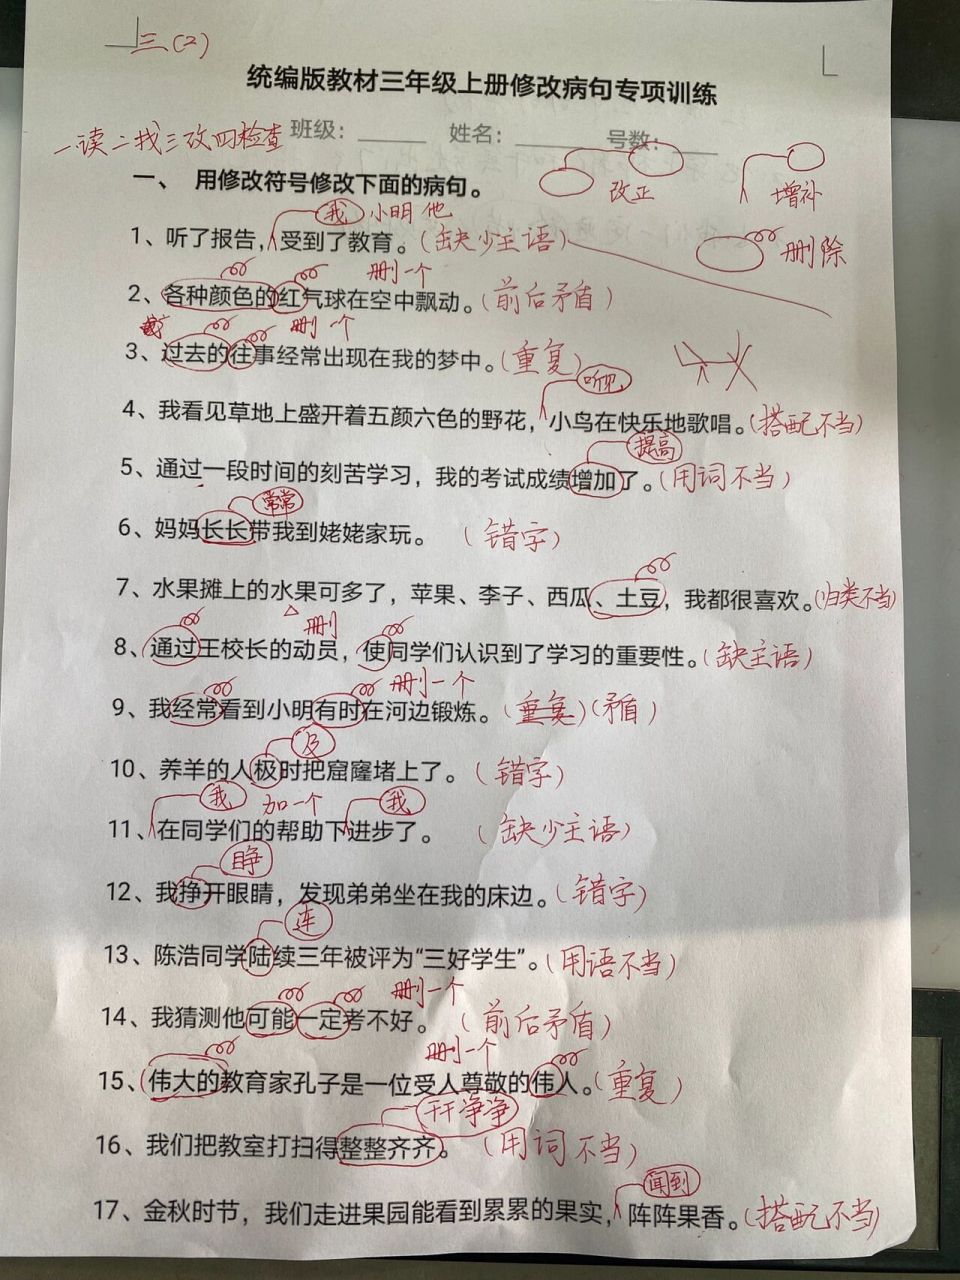 三(2)
统编版教材三年级上册修改病句专项训练
班级：______ 姓名：______ 号数：
一读二找三改四检查
改正 增补
一、 用修改符号修改下面的病句。
我 小明 他
1、听了报告，受到了教育。(缺少主语) 删除
删一个
2、各种颜色的红气球在空中飘动。(前后矛盾)
删一个
3、过去的往事经常出现在我的梦中。(重复)
听见
4、我看见草地上盛开着五颜六色的野花，小鸟在快乐地歌唱。(搭配不当)
提高
5、通过一段时间的刻苦学习，我的考试成绩增加了。(用词不当)
常常
6、妈妈长长带我到姥姥家玩。 (错字)
7、水果摊上的水果可多了，苹果、李子、西瓜、土豆，我都很喜欢。(归类不当)
删
8、通过王校长的动员，使同学们认识到了学习的重要性。(缺主语)
删一个
9、我经常看到小明有时在河边锻炼。(重复)(矛盾)
及
10、养羊的人极时把窟窿堵上了。(错字)
我 加一个 我
11、在同学们的帮助下进步了。 (缺少主语)
睁
12、我挣开眼睛，发现弟弟坐在我的床边。(错字)
连
13、陈浩同学陆续三年被评为“三好学生”。(用语不当)
删一个
14、我猜测他可能一定考不好。 (前后矛盾)
删一个
15、伟大的教育家孔子是一位受人尊敬的伟人。(重复)
干干净净
16、我们把教室打扫得整整齐齐。 (用词不当)
闻到
17、金秋时节，我们走进果园能看到累累的果实，阵阵果香。(搭配不当)